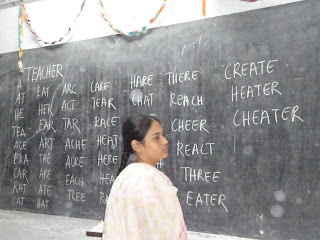 TEACHER
A EAT ARC CARE HARE THERE CREATE
AT ARE ACT TEAR CHAT REACH HEATER
HE HER TAR RACE CHEER CHEATER
TEA EAR ACHE HEAT REACT
ACE ART ACRE HERE THREE
ERA THE EACH EATER
CAR ARE TREE
RAT ATE
CAT HAT